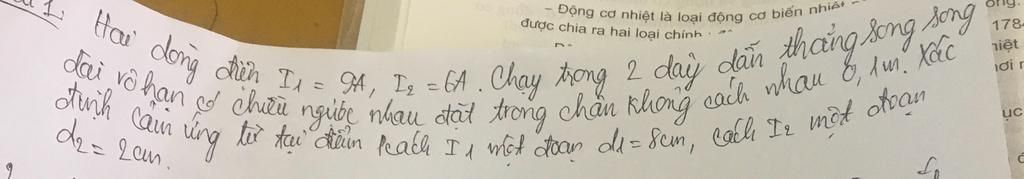 - Động cơ nhiệt là loại động cơ biến nhiệt
được chia ra hai loại chính
178
1. Hai dòng điện I₁ = 9A, I₂ = 6A. Chạy trong 2 dây dẫn thẳng song song
dài vô hạn có chiều ngược nhau đặt trong chân không cách nhau 0,1m. Xác
định cảm ứng từ tại điểm cách I₁ một đoạn d₁ = 8cm, cách I₂ một đoạn
d₂ = 2cm.